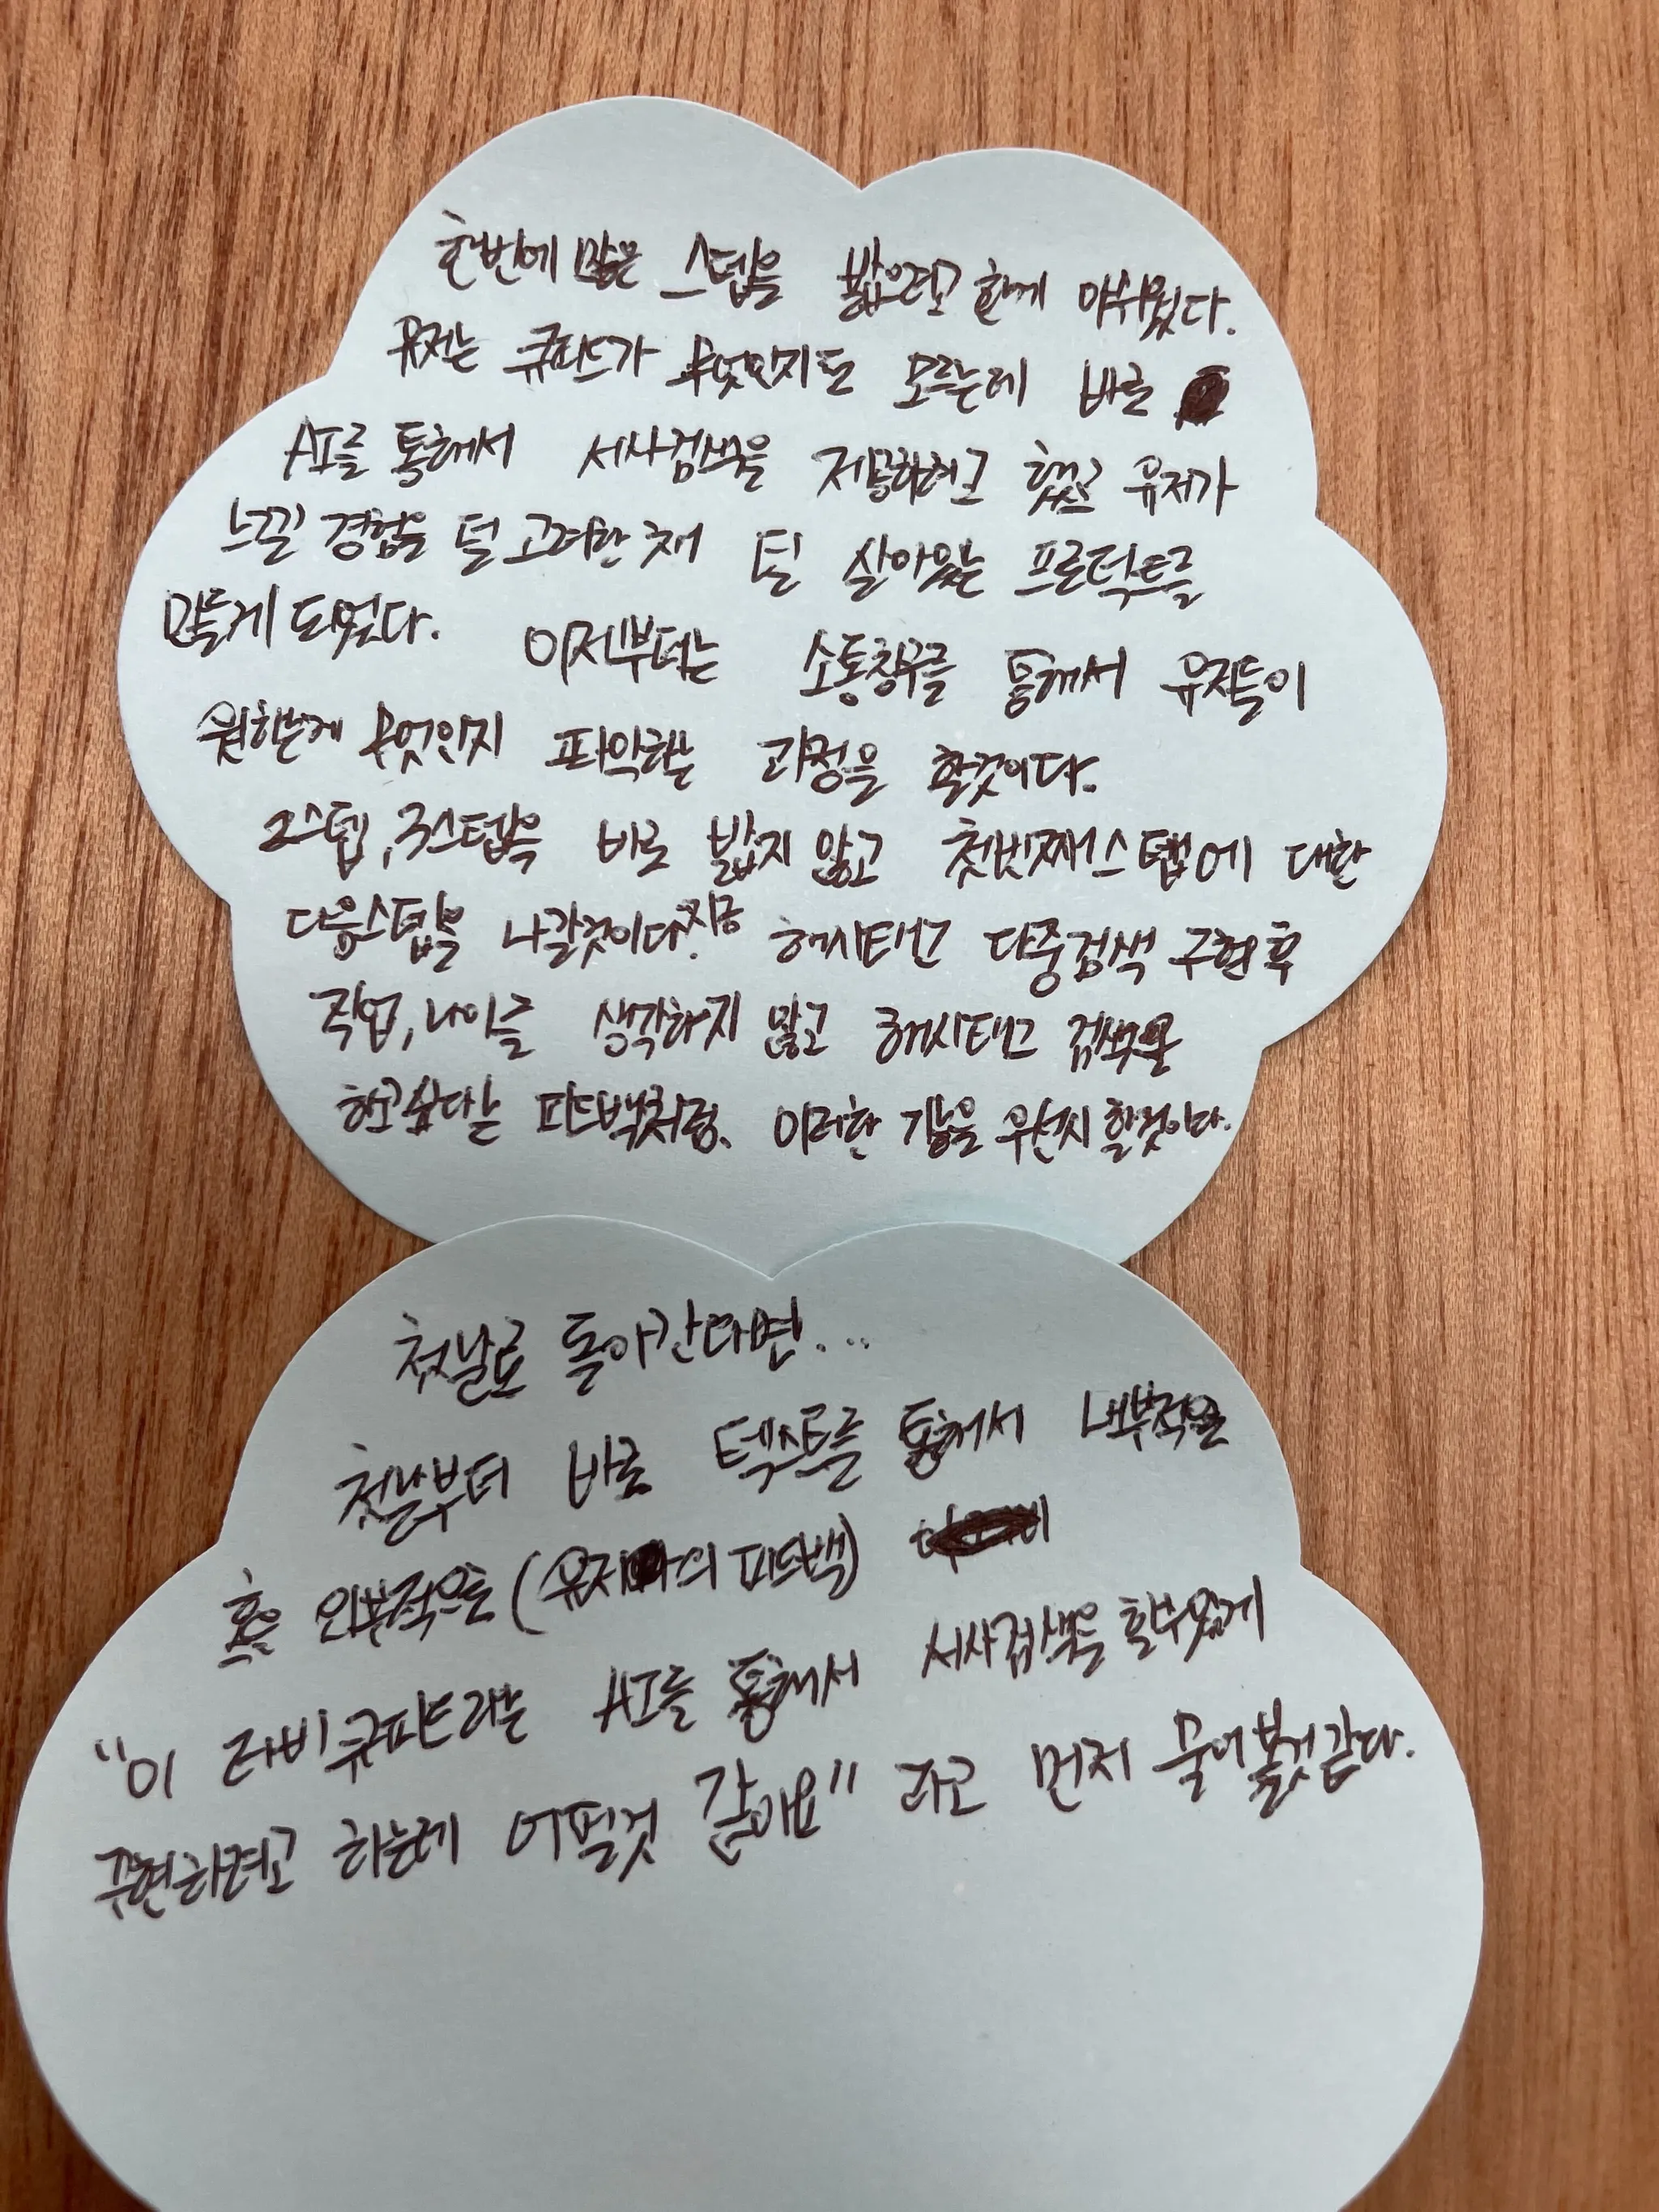 한번에 많은 스텝을 밟으려고 한게 아쉬웠다.
유저는 큐피드가 무엇인지도 모르는데 바로
AI를 통해서 서사검색을 제공하려고 했고 유저가
느낄 경험을 덜 고려한 채 덜 살아있는 프로덕트를
만들게 되었다. 이제부터는 소통창구를 통해서 유저들이
원하는게 무엇인지 파악하는 과정을 할것이다.
2스텝, 3스텝을 바로 밟지 않고 첫번째스텝에 대한
다음스텝을 나갈것이다. 지금 해시태그 다중검색 구현 후
직업, 나이를 생각하지 말고 해시태그 검색을
하고싶다는 피드백처럼. 이러한 기능을 우선시 할것이다.
첫날로 돌아간다면...
첫날부터 바로 텍스트를 통해서 내부적
혹은 외부적으로 (유저의 피드백)
"이 러비큐피드라는 AI를 통해서 서사검색을 할수있게
구현하려고 하는데 어떨것 같아요" 라고 먼저 물어볼것같다.